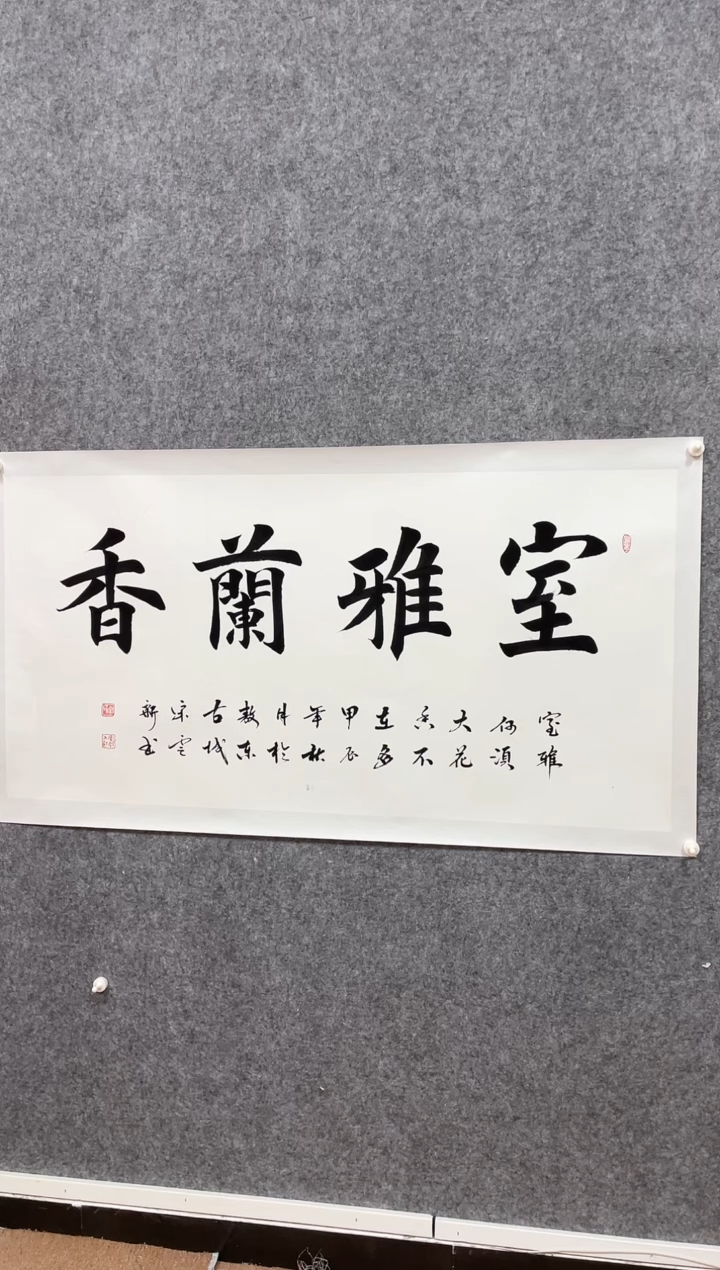 室雅蘭香
室雅
何須
大花
香不
在多
甲辰
年秋
月於
敖東
古城
宗雲
新书